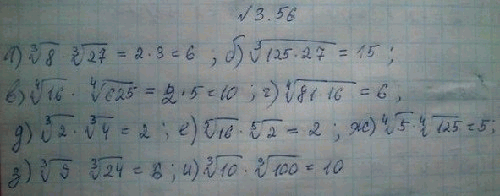 №3.56
а) ∛8 ∛27 = 2·3=6 ; б) ∛125·27 = 15 ;
в) ∜16 · ∜625 = 2·5=10 ; г) ∜81·16 = 6 ,
д) ∛2 · ∛4 = 2 ; е) ⁵√16 · ⁵√2 = 2 ; ж) ∜5 · ∜125 = 5 ;
з) ∛9 ∛24 = 6 ; и) ∛10 · ∛100 = 10